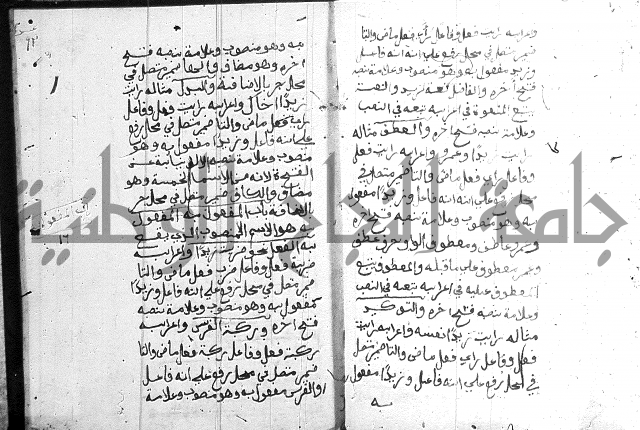 واعرابه رايت فعل وفاعل رأى فعل ماض والتا
ضمير متصل في محل رفع على انه فاعل
وزيدا مفعول به وهو منصوب وعلامة نصبه
فتح اخره والفاضل نعت لزيد والنعت
يتبع المنعوت في اعرابه تبعه في النصب
وعلامة نصبه فتح اخره والعطف مثاله
رايت زيدا وعمرا واعرابه رايت فعل
وفاعل راي فعل ماض والتا ضمير متصل في
محل رفع على انه فاعل وزيدا مفعول
به وهو منصوب وعلامة نصبه فتح اخره
وعمرا عاطف ومعطوف الواو حرف عطف
وعمرا معطوف على ما قبله والمعطوف يتبع
المعطوف عليه في اعرابه تبعه في النصب
وعلامة نصبه فتح اخره والتوكيد
مثاله رايت زيدا نفسه واعرابه رايت
فعل وفاعل راي فعل ماض والتا ضمير متصل
في محل رفع على انه فاعل وزيدا مفعول
به
به وهو منصوب وعلامة نصبه فتح
اخره وهو مضاف والها ضمير متصل في
محل جر بالاضافة والبدل مثاله رايت
زيدا اخاك واعرابه رايت فعل وفاعل
راي فعل ماض والتا ضمير متصل في محل رفع
على انه فاعل وزيدا مفعول به وهو
منصوب وعلامة نصبه الالف نيابة عن
الفتحة لانه من الاسماء الخمسة وهو
مضاف والكاف ضمير متصل في محل جر
بالاضافة باب المفعول به المفعول
به هو الاسم المنصوب الذي يقع
به الفعل نحو ضربت زيدا واعرابه
ضربت فعل وفاعل ضرب فعل ماض والتا
ضمير متصل في محل رفع على انه فاعل وزيدا
مفعول به وهو منصوب وعلامة نصبه
فتح اخره وركبت الفرس واعرابه
ركبت فعل وفاعل ركب فعل ماض والتا
ضمير متصل في محل رفع على انه فاعل
والفرس مفعول به وهو منصوب وعلامة
جامعة النجاح الوطنية